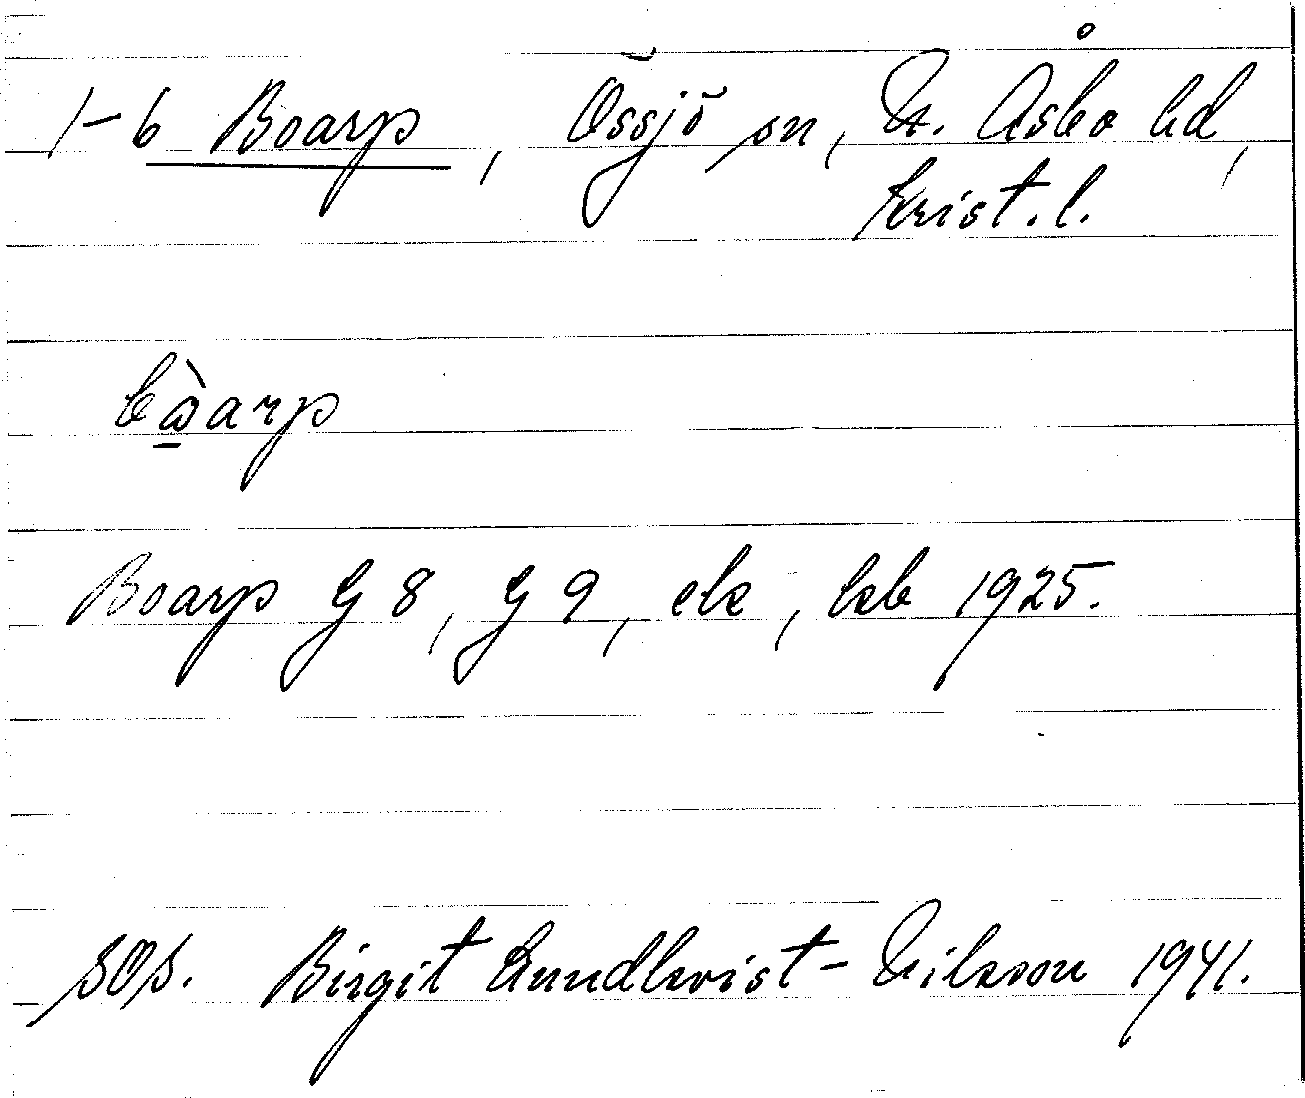 1-6 Boarp, Össjö sn, N. Åsbo hd,
Krist. l.
bὼ̲arp
Boarp G 8, G 9, ek, hsb 1925.
SOS. Birgit Lundkvist-Nilsson 1941.